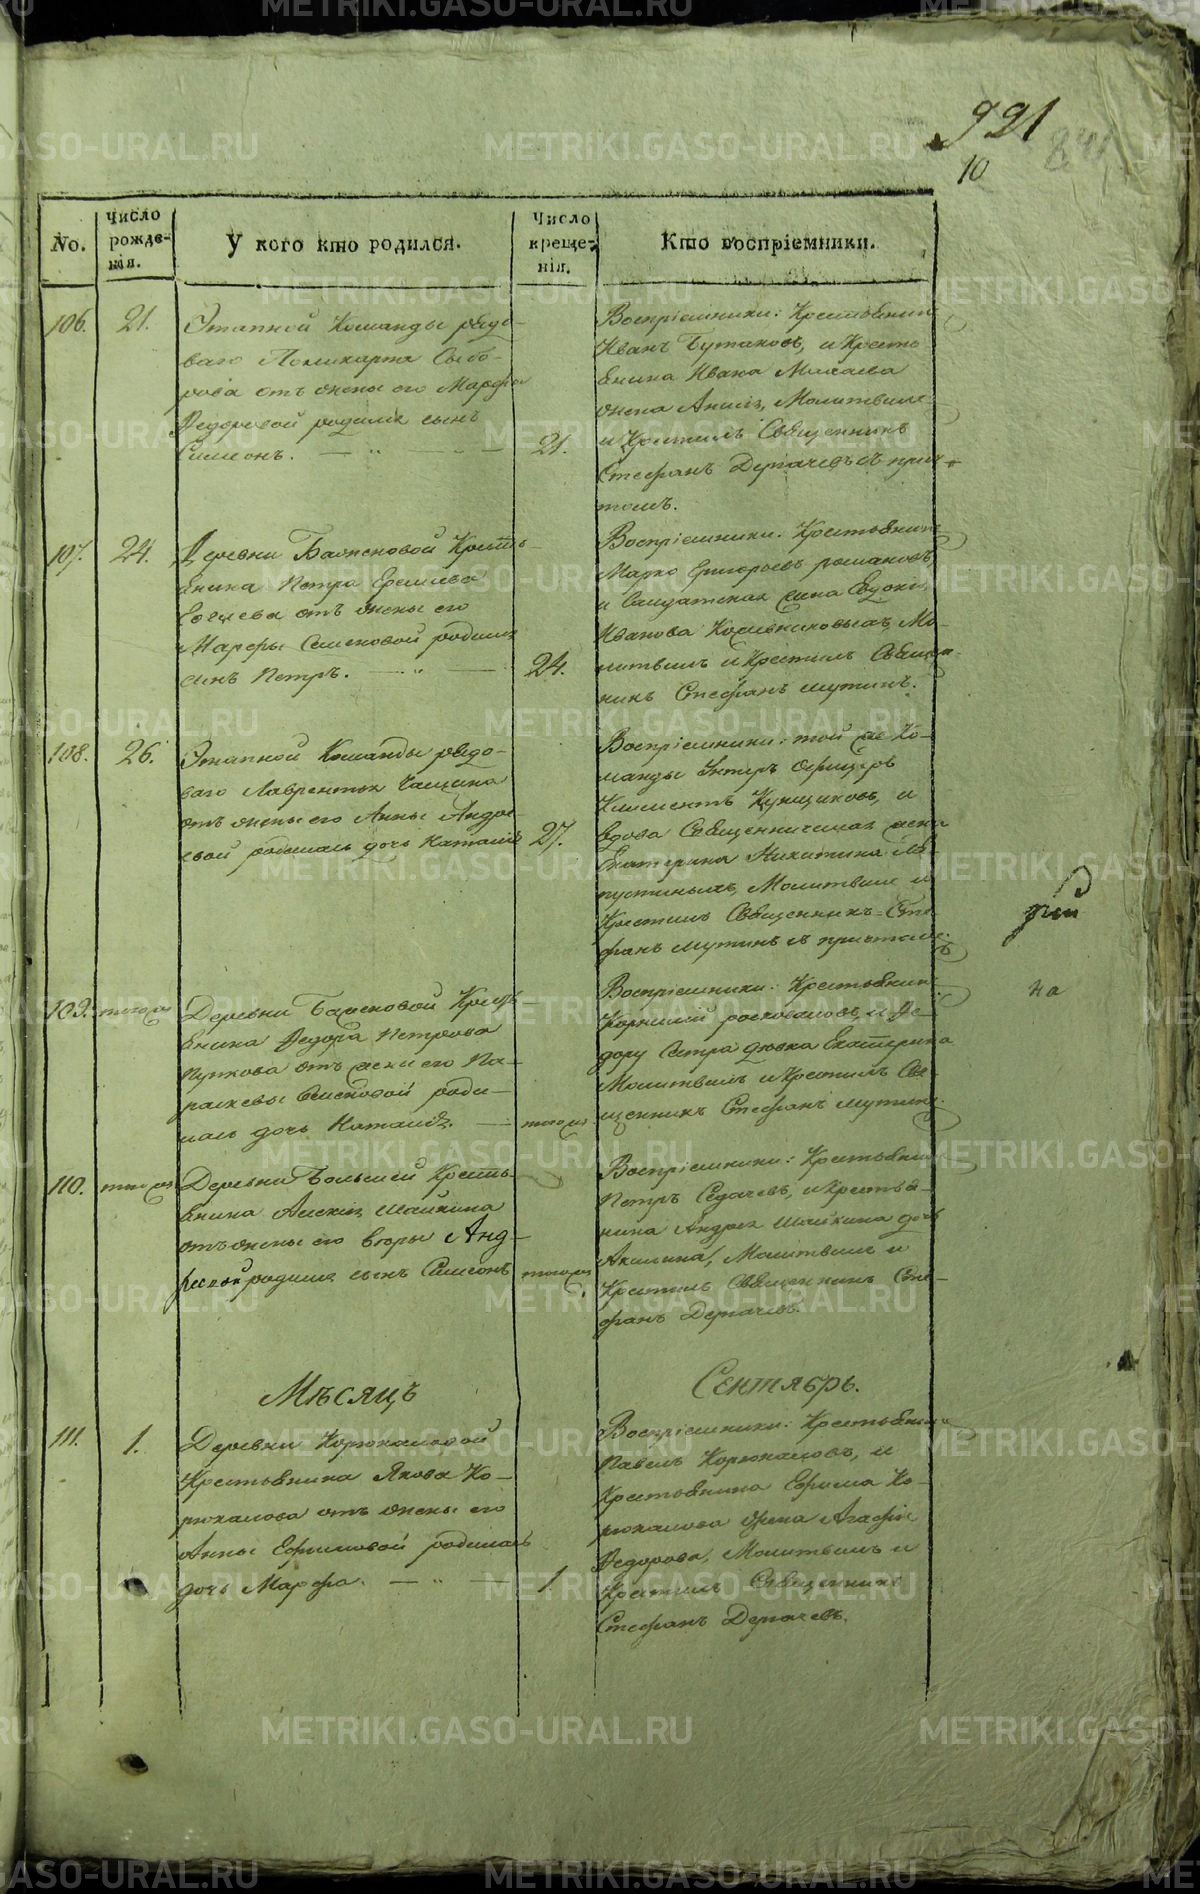 921
10
No.
Число рожде-нія.
У кого кто родился.
Число креще-нія.
Кто воспріемники.
106.
21.
Этапной Команды рядо-
ваго Поликарпа
рова отъ жены его Марфы
Федоровой родился сынъ
Симеонъ.
21.
Воспріемники: Крестьянинъ
Иванъ Бутаковъ, и Кресть
янина Ивана
жена Молитвилъ
и Крестилъ Священникъ
Стефанъ Дерпачевъ съ прич-
томъ.
107.
24.
Деревни Баженовой Кресть-
янина Петра
отъ жены его
Марфы Семеновой родился
сынъ Петръ.
24.
Воспріемники: Крестьянинъ
Марко
и Салдатская жена
Иванова Мо-
литвилъ и Крестилъ Священ-
никъ Стефанъ Мутинъ.
108.
26.
Этапной Команды рядо-
ваго Лаврентья
отъ жены его Анны Андре-
евой родилась дочь Наталія
27.
Воспріемники: той же Ко-
манды Унтеръ Офицеръ
Климентъ и
вдова Священническая жена
Екатерина Никитина
Молитвилъ и
Крестилъ Священникъ Сте-
фанъ Мутинъ съ причтомъ.
109.
того же
Деревни Баженовой Кресть-
янина Федора Петрова
Пупкова отъ жены его Па-
раскевы Семеновой роди-
лась дочь Наталія.
того же
Воспріемники: Крестьянинъ
Корнилій и Фе-
дору Сестра девка Екатерина
Молитвилъ и Крестилъ Свя-
щенникъ Стефанъ Мутинъ.
на
110.
того же
Деревни Большей Кресть-
янина Алексія Шайкина
отъ жены его Анд-
реевой родился сынъ Симеонъ
того же
Воспріемники: Крестьянинъ
Петръ Седачевъ, и Крестья-
нина Андрея Шайкина дочь
Акилина, Молитвилъ и
Крестилъ Священникъ Сте-
фанъ Дерпачевъ.
Мѣсяцъ
Сентябрь.
111.
1.
Деревни Корюкаловой
Крестьянина Якова Ко-
рюкалова отъ жены его
Анны Ефимовой родилась
дочь Марфа.
1.
Воспріемники: Крестьянинъ
Павелъ Корюкаловъ, и
Крестьянина Ефима Ко-
рюкалова жена Агафія
Федорова, Молитвилъ и
Крестилъ Священникъ
Стефанъ Дерпачевъ.
METRIKI.GASO-URAL.RU